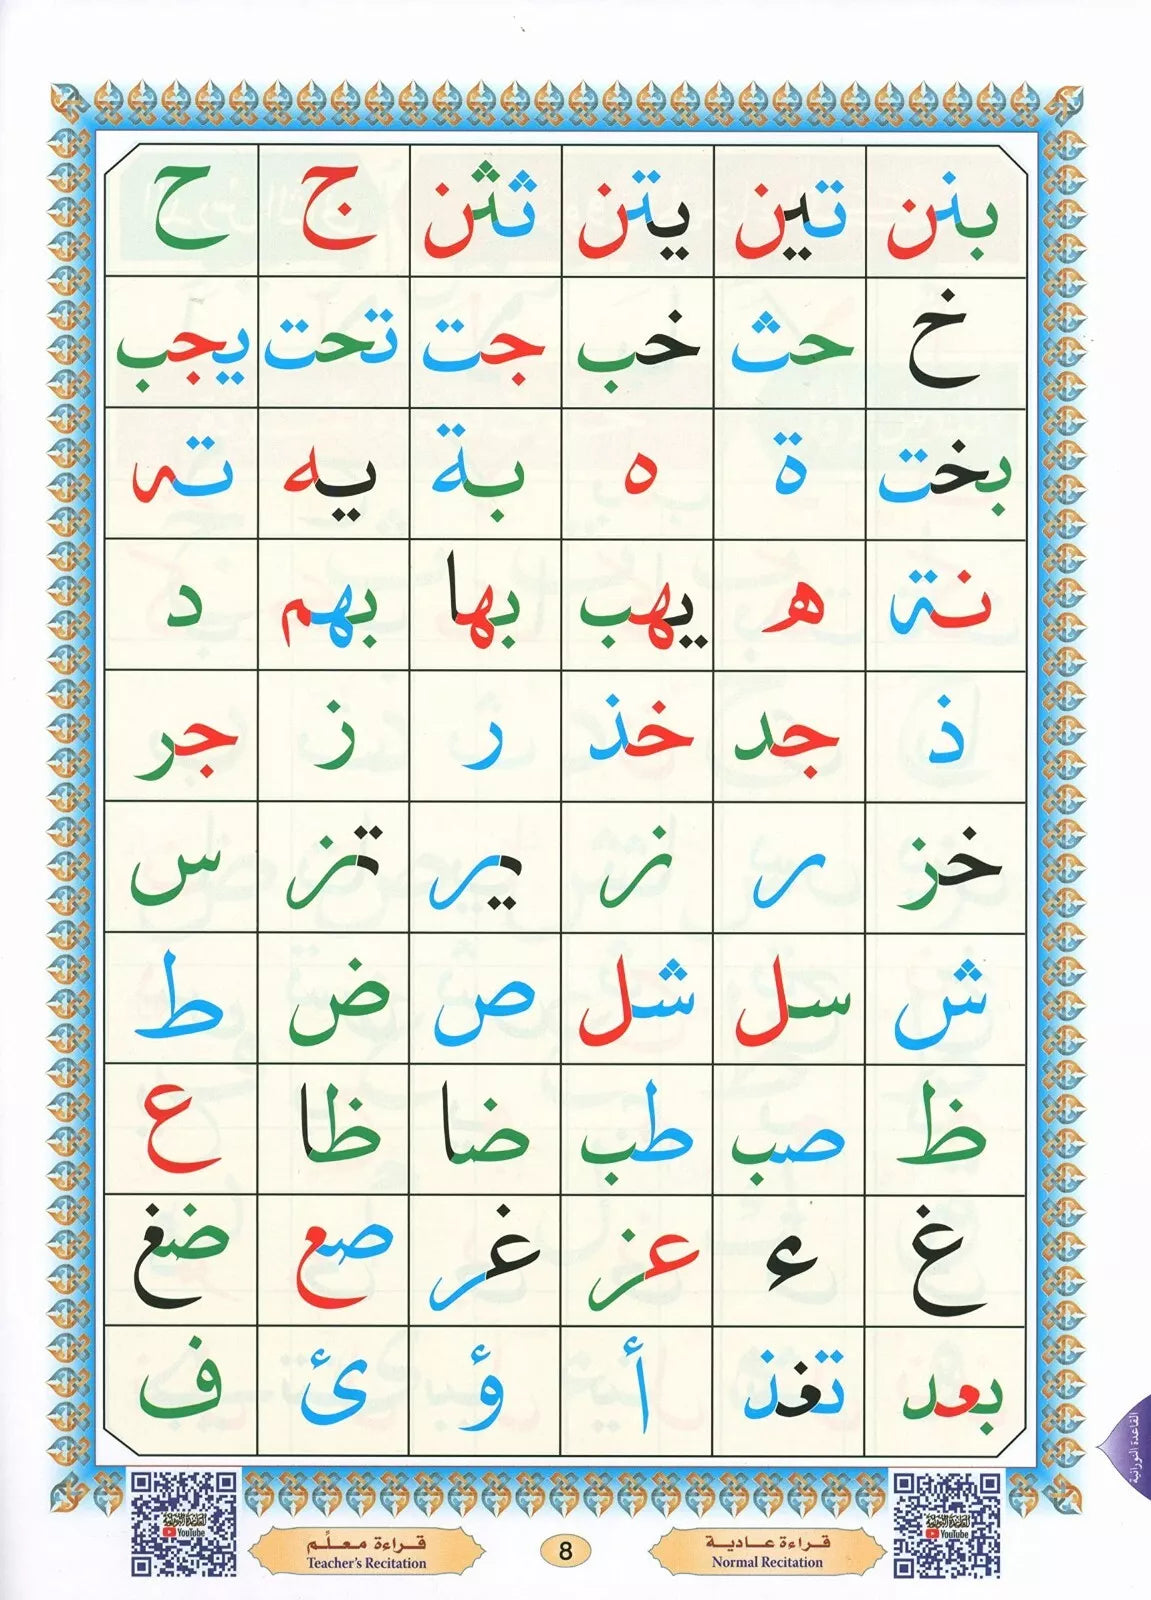 بنن تين يتن ثثن ج ح
خ حث خب جت تحت يجب
بخت ة ه بة يه ته
نة ه يهب بها بهم د
ذ جد خذ ر ز جر
خز ر ز ير تز س
ش سل شل ص ض ط
ظ صب طب ضا ظا ع
غ ء عز غر صع ضغ
بعد تغذ أ ؤ ئ ف
القاعدة النورانية
YouTube
YouTube
قراءة عادية
Normal Recitation
8
قراءة معلّم
Teacher's Recitation